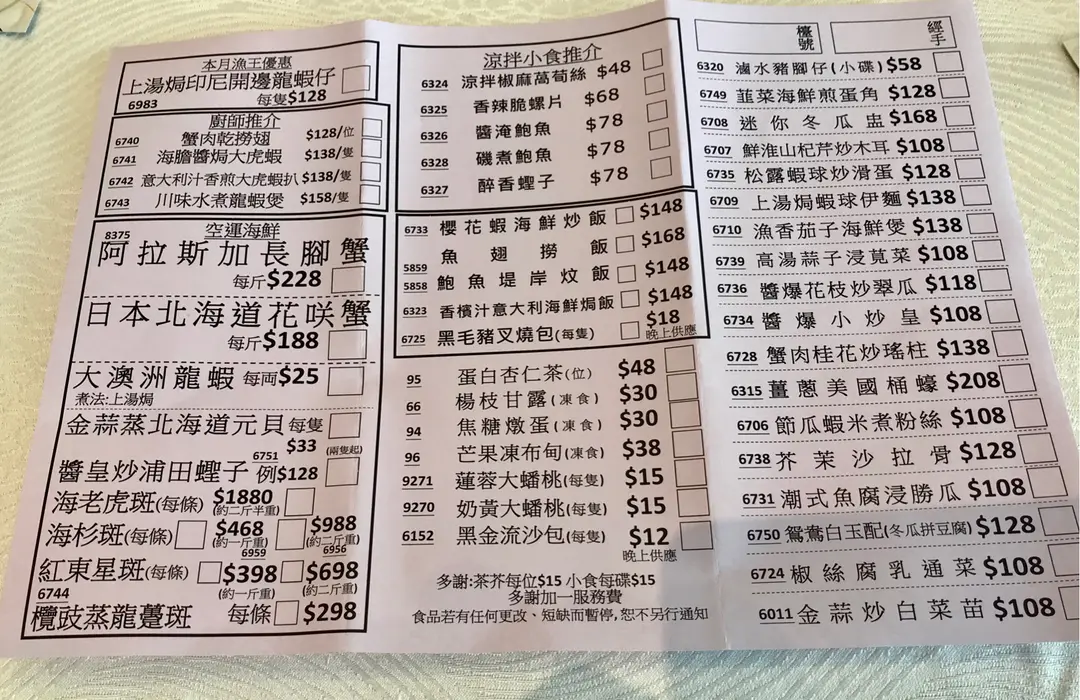 本月漁王優惠
上湯焗印尼開邊龍蝦仔
6983 每隻$128
廚師推介
6740 蟹肉乾撈翅 $128/位
6741 海膽醬焗大虎蝦 $138/隻
6742 意大利汁香煎大虎蝦扒 $138/隻
6743 川味水煮龍蝦煲 $158/隻
8375 空運海鮮
阿拉斯加長腳蟹
每斤$228
日本北海道花咲蟹
每斤$188
大澳洲龍蝦 每両$25
煮法:上湯焗
金蒜蒸北海道元貝 每隻
$33 (兩隻起)
6751
醬皇炒浦田蟶子 例$128
海老虎斑(每條) $1880
(約二斤半重)
海杉斑(每條) $468 $988
(約一斤重) (約二斤重)
6959 6956
紅東星斑(每條) $398 $698
6744 (約一斤重) (約二斤重)
欖豉蒸龍躉斑 每條 $298
涼拌小食推介
6324 涼拌椒麻萵荀絲 $48
6325 香辣脆螺片 $68
6326 醬淹鮑魚 $78
6328 磯煮鮑魚 $78
6327 醉香蟶子 $78
6733 櫻花蝦海鮮炒飯 $148
5859 魚翅撈飯 $168
5858 鮑魚堤岸炆飯 $148
6323 香檳汁意大利海鮮焗飯 $148
6725 黑毛豬叉燒包(每隻) $18
晚上供應
95 蛋白杏仁茶(位) $48
66 楊枝甘露(凍食) $30
94 焦糖燉蛋(凍食) $30
96 芒果凍布甸(凍食) $38
9271 蓮蓉大蟠桃(每隻) $15
9270 奶黃大蟠桃(每隻) $15
6152 黑金流沙包(每隻) $12
晚上供應
多謝:茶芥每位$15 小食每碟$15
多謝加一服務費
食品若有任何更改、短缺而暫停,恕不另行通知
檯號 經手
6320 滷水豬腳仔(小碟) $58
6749 韮菜海鮮煎蛋角 $128
6708 迷你冬瓜盅 $168
6707 鮮淮山杞芹炒木耳 $108
6735 松露蝦球炒滑蛋 $128
6709 上湯焗蝦球伊麵 $138
6710 漁香茄子海鮮煲 $138
6739 高湯蒜子浸莧菜 $108
6736 醬爆花枝炒翠瓜 $118
6734 醬爆小炒皇 $108
6728 蟹肉桂花炒瑤柱 $138
6315 薑蔥美國桶蠔 $208
6706 節瓜蝦米煮粉絲 $108
6738 芥茉沙拉骨 $128
6731 潮式魚腐浸勝瓜 $108
6750 鴛鴦白玉配(冬瓜拼豆腐) $128
6724 椒絲腐乳通菜 $108
6011 金蒜炒白菜苗 $108